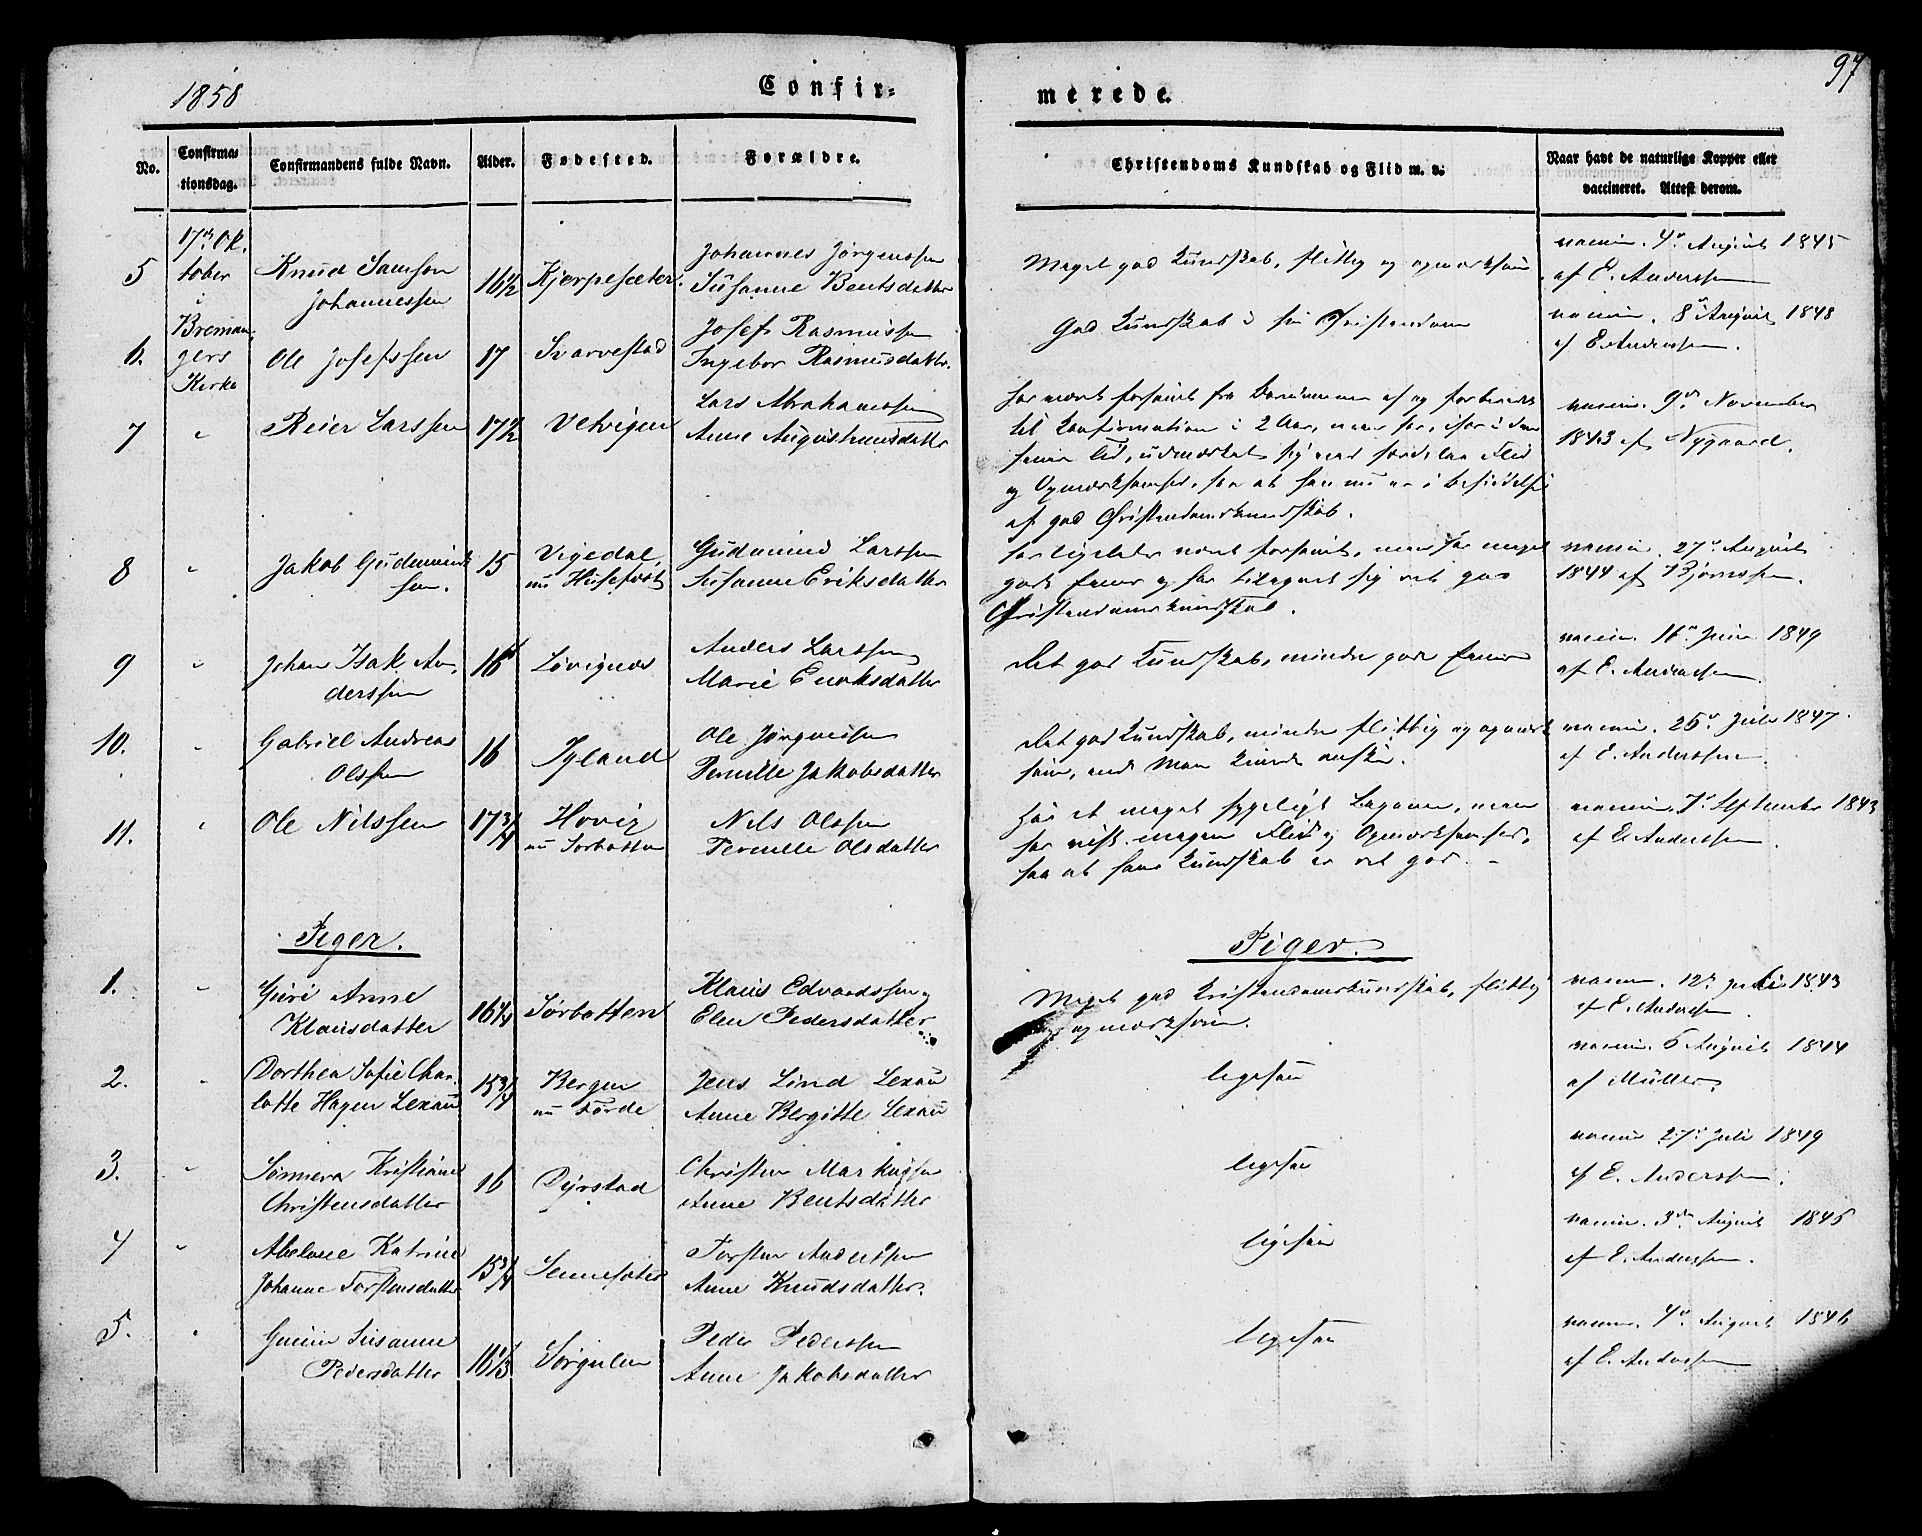 97
1858
Confir=
merede.
No.
Confirma-
tionsdag.
Confirmandens fulde Navn.
Alder.
Fødested.
Forældre.
Christendoms Kundskab og Flid m. v.
Naar havt de naturlige Kopper eller
vaccineret. Attest derom.
5
17de Ok.
tober
i
Breman-
gers
Kirke
Knud Samson
Johannessen
16½
Kjerpesæter
Johannes Jørgenssen
Susanne Bentsdatter
Meget god Kundskab, flittig og opmærksom
vaccin. 4de August 1845
af E. Anderssen
6.
Ole Josefssen
17
Svarvestad
Josef Rasmussen
Ingebor Rasmusdatter.
God Kundskab i sin Christendom
vaccin. 8de August 1848
af E. Anderssen.
7
"
Reier Larssen
17½
Vetvigen
Lars Abrahamssen
Anne Augustinusdatter
Har været forsømt fra Barndommen af og forberedt
til Confirmation i 2 Aar, men har, især i den
senere Tid, udmærket sig ved særdeles Flid
og Opmærksomhed, saa at han nu er i besiddelse
af god Christendomskundskab.
vaccin. 9de November
1843 af Nygaard.
8
"
Jakob Gudmund-
sen.
15
Vigedal,
nu Husefest
Gudmund Larssen
Susanne Eriksdatter
har ligeledes været forsømt, men har meget
gode Evner og har tilegnet sig ret god
Christendomskundskab.
vaccin. 27de August
1844 af Bjørnssen.
9
"
Johan Isak An-
derssen
16
Løvignes
Anders Larssen
Marie Enoksdatter
Ret god Kundskab, mindre gode Evner
vaccin. 16de Juni 1849
af E. Anderssen.
10.
"
Gabriel Andreas
Olssen
16
Igland
Ole Jørgenssen
Pernille Jakobsdatter
Ret god Kundskab, mindre flittig og opmærk
som, end Man kunde ønske.
vaccin. 25de Juli 1847.
af E. Anderssen.
11.
"
Ole Nilssen
17¾
Hovig
nu Sørbotten
Nils Olssen
Pernille Olsdatter
Har et meget sygeligt Legeme, men
har vist megen Flid og Opmærksomhed,
saa at hans Kundskab er ret god.
vaccin. 7de September 1843
af E. Anderssen.
Piger.
Piger.
1.
"
Guri Anne
Klausdatter
16¼
Sørbotten
Klaus Edvardssen
Elen Pedersdatter
Meget god Kristendomskundskab, flittig
og opmærksom.
vaccin. 12te Juli 1843
af E. Anderssen.
2.
"
Dorthea Sofie Char-
lotte Hagen Lexau
15¾
Bergen
nu Førde
Jens Lind Lexau
Anne Bergitte Lexau
ligesaa
vaccin. 6 August 1844
af Müller.
3.
"
Sønneva Kristiane
Christensdatter
16
Dyrstad
Christen Markussen
Anne Bentsdatter
ligesaa
vaccin 27de Juli 1849
af E. Anderssen.
4
"
Abelone Katrine
Johanne Torstensdatter
15¾
Sennesæter
Torsten Anderssen
Anne Knudsdatter.
ligesaa
vaccin. 3die August 1845
af E. Anderssen.
5.
"
Susanne
Pedersdatter
16⅓
Sørgulen
Peder Pederssen
Anne Jakobsdatter
ligesaa
vaccin. 4de August 1846
af E. Anderssen